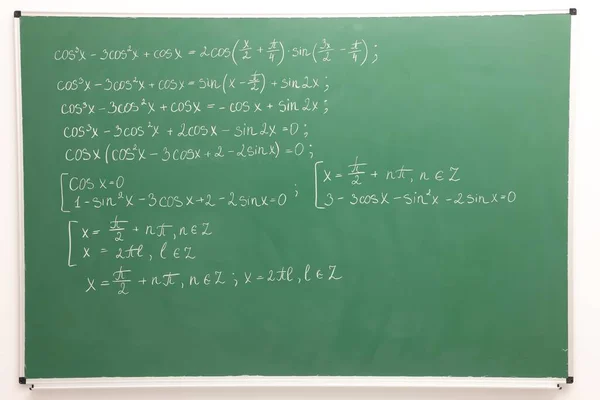 cos³x − 3cos²x + cosx = 2cos(x/2 + π/4) · sin(3/2 − π/4) ;
cos³x − 3cos²x + cosx = sin(x − π/2) + sin2x ;
cos³x − 3cos²x + cosx = − cosx + sin2x ;
cos³x − 3cos²x + 2cosx − sin2x = 0 ;
cosx (cos²x − 3cosx + 2 − 2sinx) = 0 ;
[ cosx = 0
1 − sin²x − 3cosx + 2 − 2sinx = 0 ;
[ x = π/2 + nπ, n ∈ Z
3 − 3cosx − sin²x − 2sinx = 0
[ x = π/2 + nπ, n ∈ Z
x = 2πl, l ∈ Z
x = π/2 + nπ, n ∈ Z ; x = 2πl, l ∈ Z